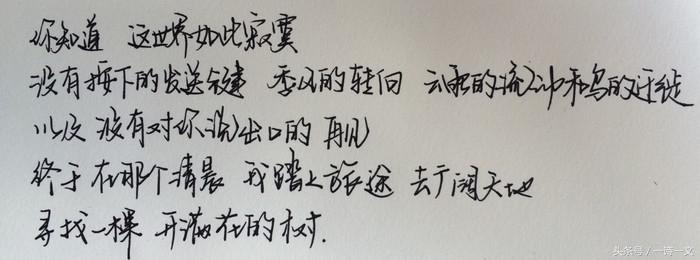 你知道 这世界如此寂寞
没有按下的发送键 季风的转向 云和的流动和鸟的迁徙
以及 没有对你说出口的 再见
终于在那个清晨 我踏上旅途 去广阔天地
寻找一棵 开满花的树.
头条号 / 一诗一文